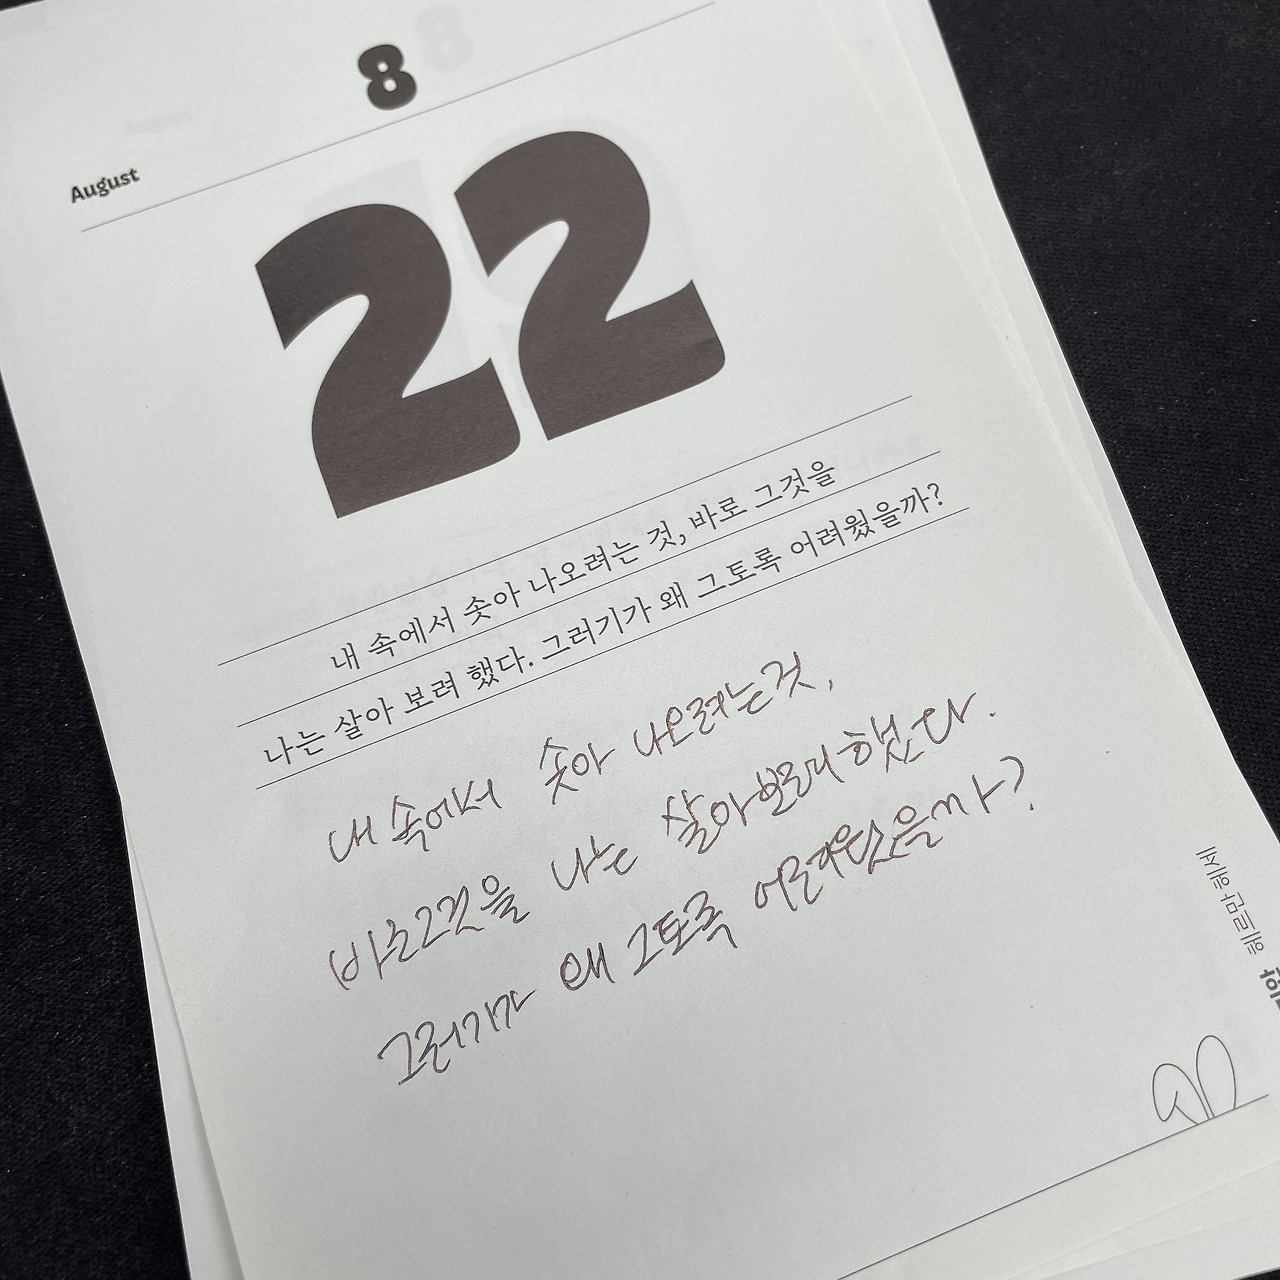 8
August
22
내 속에서 솟아 나오려는 것, 바로 그것을
나는 살아 보려 했다. 그러기가 왜 그토록 어려웠을까?
내 속에서 솟아 나오려는것,
바로그것을 나는 살아보려 했다.
그러기가 왜 그토록 어려웠을까?
헤르만 헤세